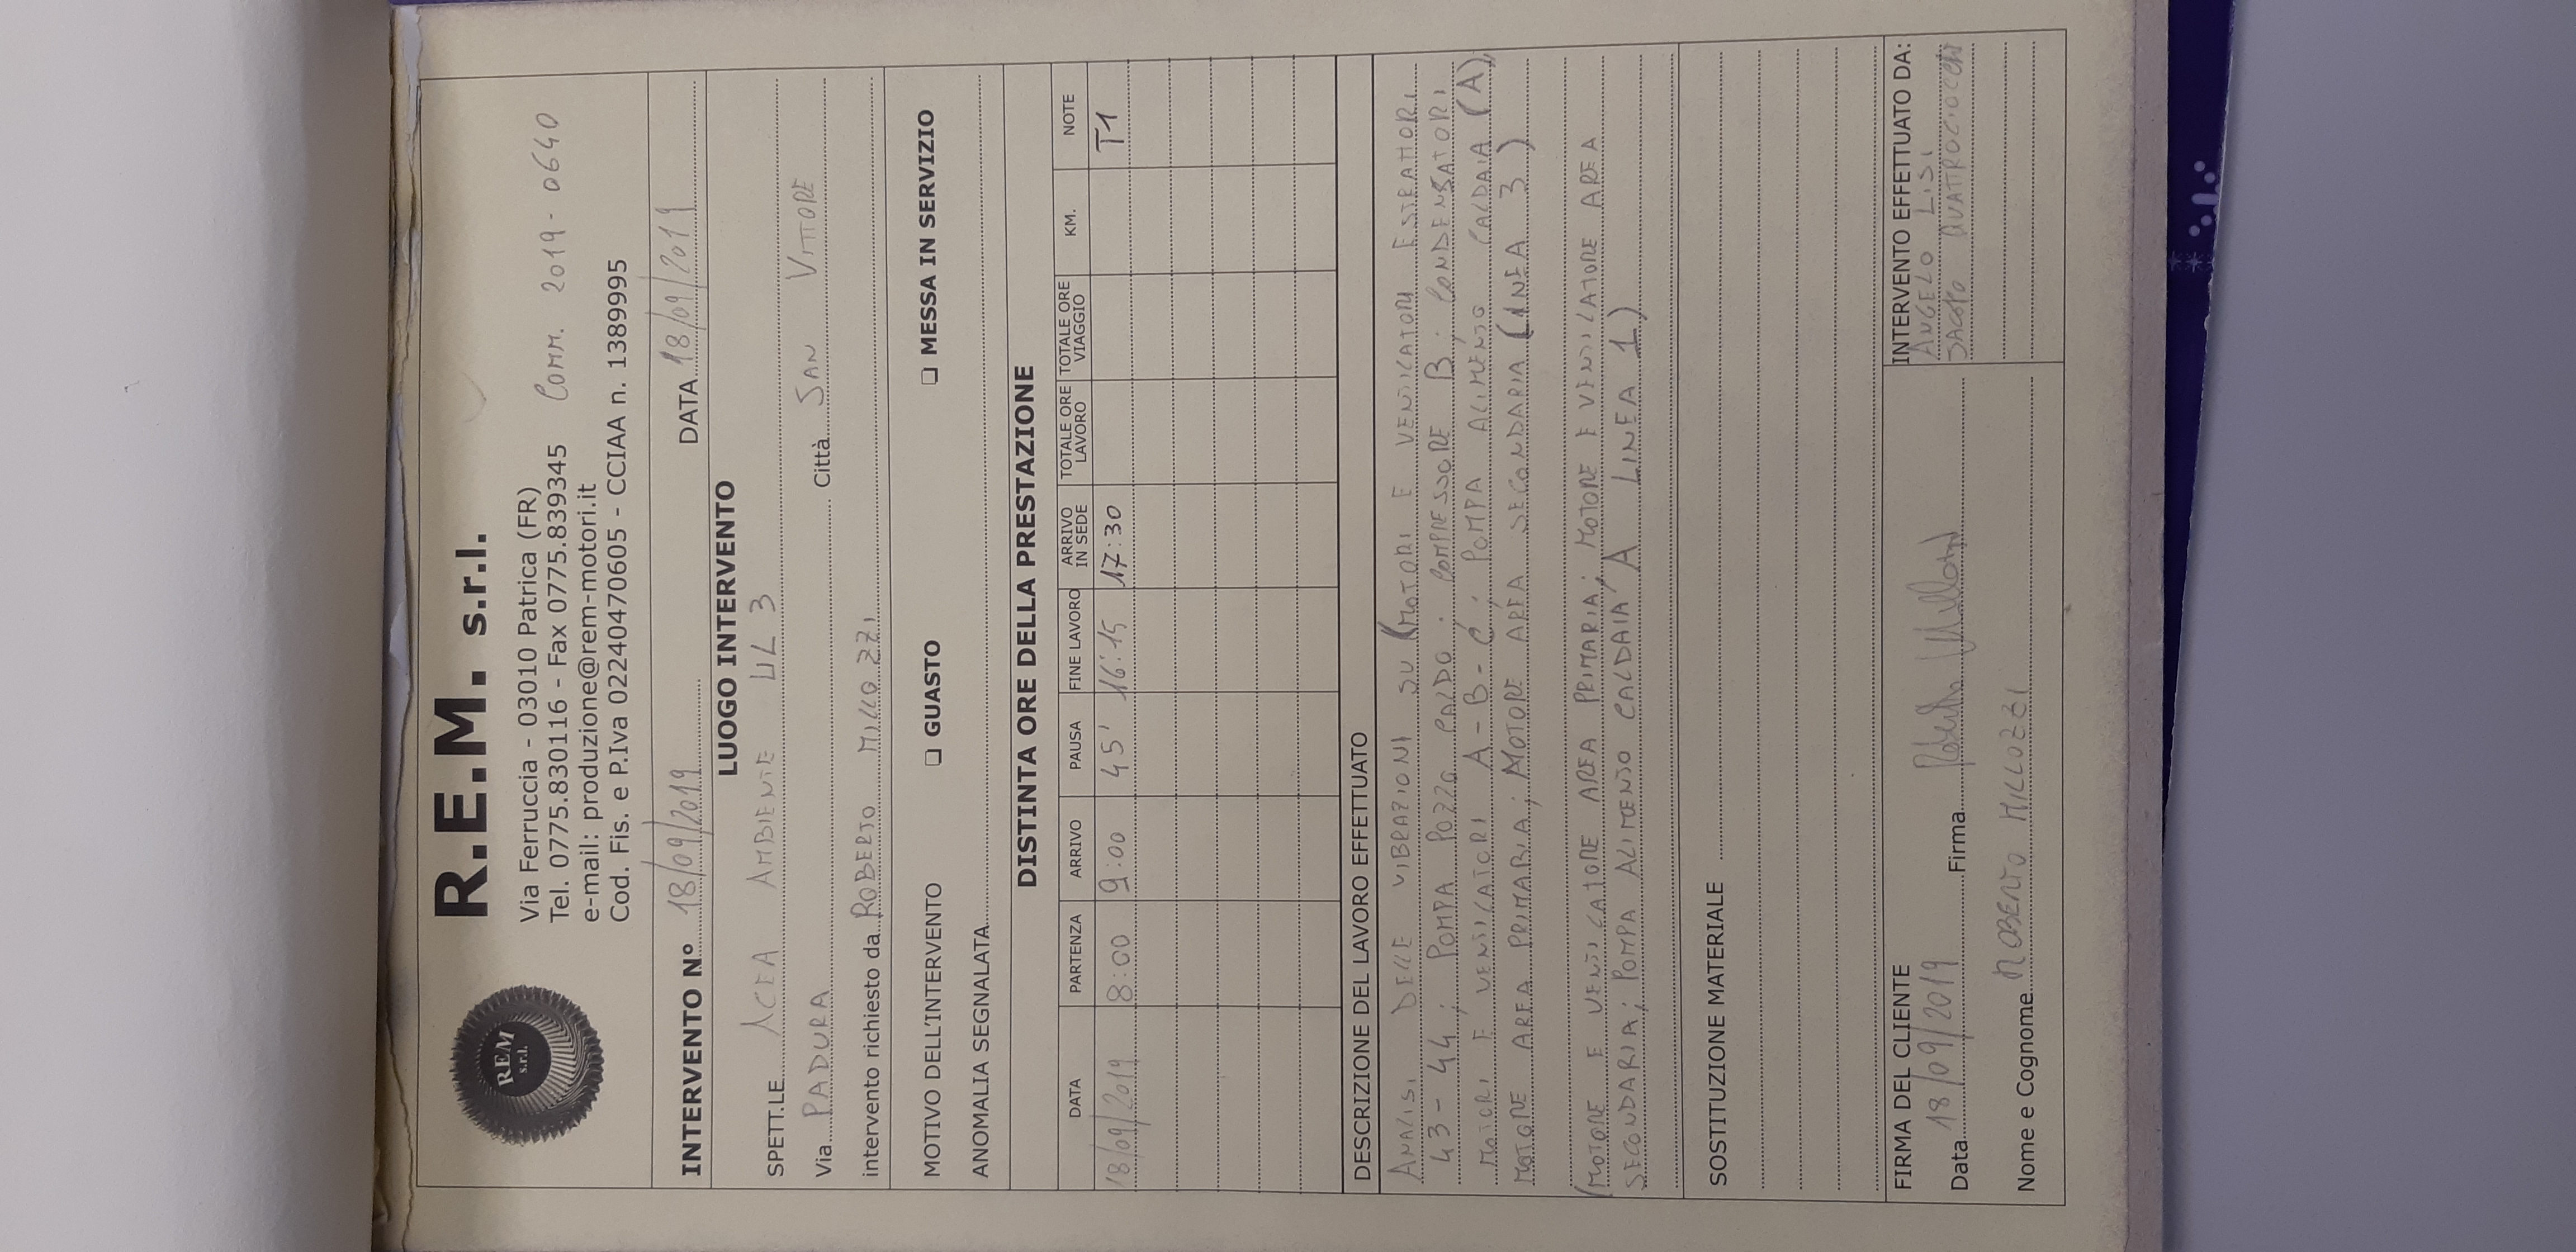 REM
s.r.l.
R.E.M. s.r.l.
Via Ferruccia - 03010 Patrica (FR)
Tel. 0775.830116 - Fax 0775.839345 Comm. 2019-0640
e-mail: produzione@rem-motori.it
Cod. Fis. e P.Iva 02240470605 - CCIAA n. 1389995
INTERVENTO N° 18/09/2019 DATA 18/09/2019
LUOGO INTERVENTO
SPETT.LE ACEA AMBIENTE UL 3
Via PADURA Città SAN VITTORE
intervento richiesto da ROBERTO MILLOZZI
MOTIVO DELL'INTERVENTO ❏ GUASTO ❏ MESSA IN SERVIZIO
ANOMALIA SEGNALATA
DISTINTA ORE DELLA PRESTAZIONE
DATA PARTENZA ARRIVO PAUSA FINE LAVORO ARRIVO IN SEDE TOTALE ORE LAVORO TOTALE ORE VIAGGIO KM. NOTE
18/09/2019 8:00 9:00 45' 16:15 17:30 T1
DESCRIZIONE DEL LAVORO EFFETTUATO
ANALISI DELLE VIBRAZIONI SU (MOTORI E VENTILATORI ESTRATTORI
43-44; POMPA POZZO CALDO; COMPRESSORE B; CONDENSATORI
MOTORI E VENTILATORI A-B-C; POMPA ALIMENTO CALDAIA (A);
MOTORE AREA PRIMARIA; MOTORE AREA SECONDARIA (LINEA 3)
(MOTORE E VENTILATORE AREA PRIMARIA; MOTORE E VENTILATORE AREA
SECONDARIA; POMPA ALIMENTO CALDAIA A LINEA 1)
SOSTITUZIONE MATERIALE
FIRMA DEL CLIENTE INTERVENTO EFFETTUATO DA:
Data 18/09/2019 Firma ANGELO LISI
JACOPO QUATTROCIOCCHI
Nome e Cognome ROBERTO MILLOZZI